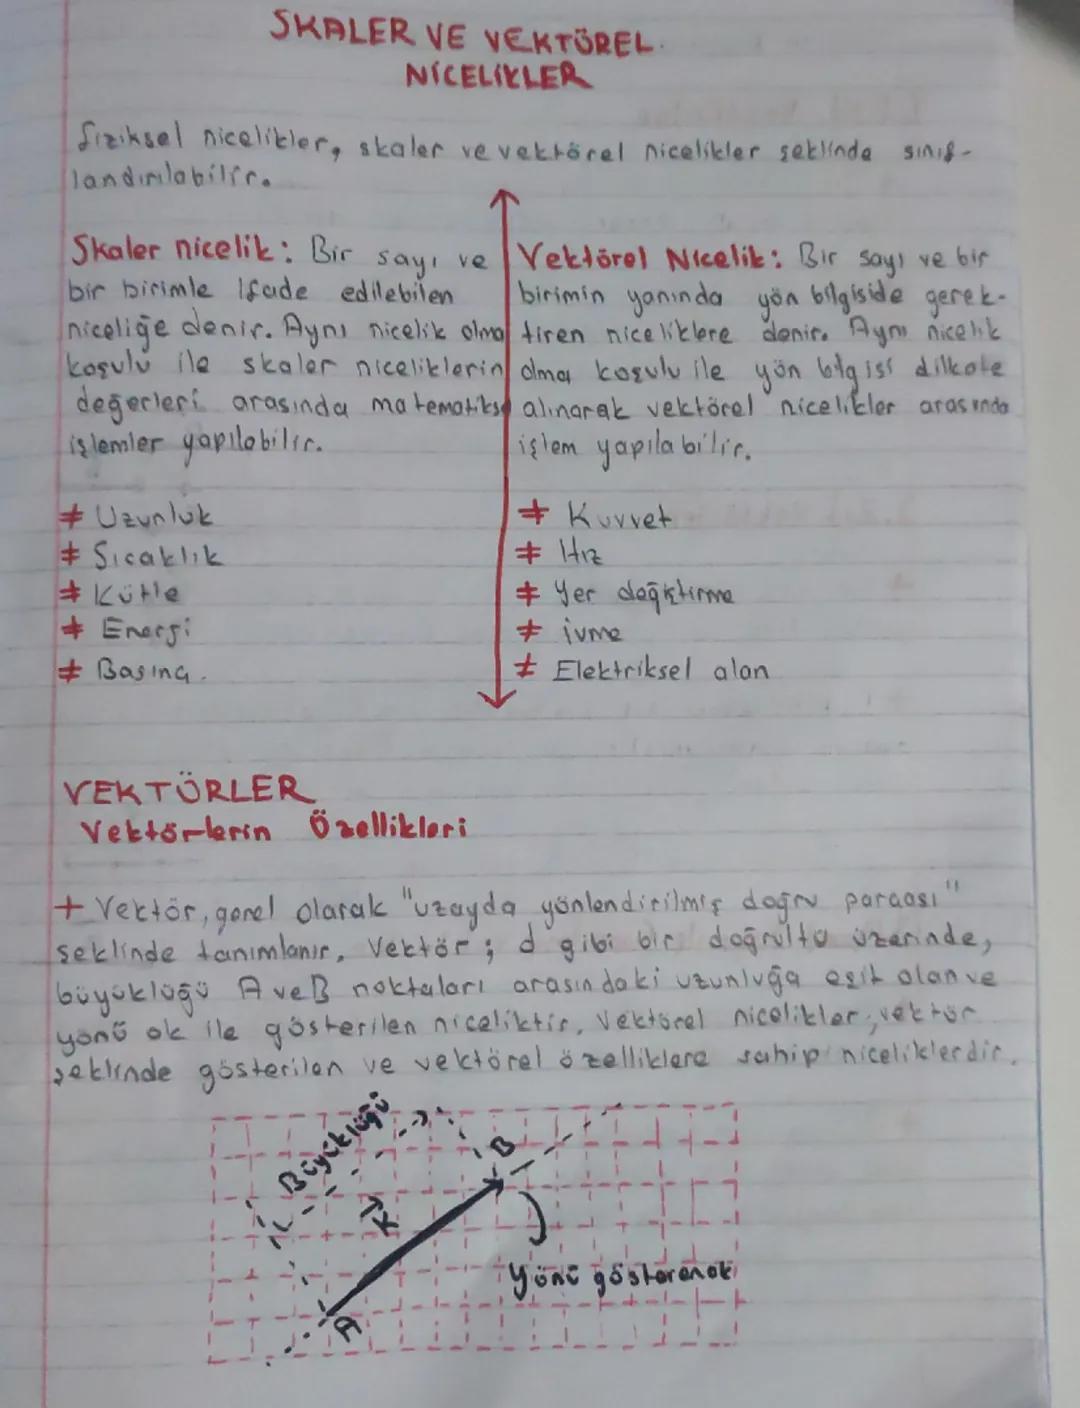 SKALER VE VEKTÖREL
NİCELİKLER
fiziksel nicelikler, skaler ve vektörel nicelikler şeklinde sınıf-
landırılabilir.
Skaler nicelik: Bir sayı ve
bir birimle ifade edilebilen
niceliğe denir. Aynı nicelik olma
koşulu ile skaler niceliklerin
değerleri arasında matematiksel
işlemler yapılabilir.
≠ Uzunluk
≠ Sıcaklık
≠ Kütle
≠ Enerji
≠ Basınç.
Vektörel Nicelik: Bir sayı ve bir
birimin yanında yön bilgiside gerek-
tiren niceliklere denir. Aynı nicelik
olma koşulu ile yön bilgisi dikkate
alınarak vektörel nicelikler arasında
işlem yapılabilir.
≠ Kuvvet
≠ Hız
≠ Yer değiştirme
≠ ivme
≠ Elektriksel alan
VEKTÖRLER
Vektörlerin Özellikleri
+ Vektör, genel olarak "uzayda yönlendirilmiş doğru parçası"
şeklinde tanımlanır. Vektör; d gibi bir doğrultu üzerinde,
büyüklüğü A ve B noktaları arasındaki uzunluğa eşit olan ve
yönü ok ile gösterilen niceliktir. Vektörel nicelikler; vektör
şeklinde gösterilen ve vektörel özelliklere sahip niceliklerdir.
Büyüklüğü
B
K
Yönü gösteren ok
A